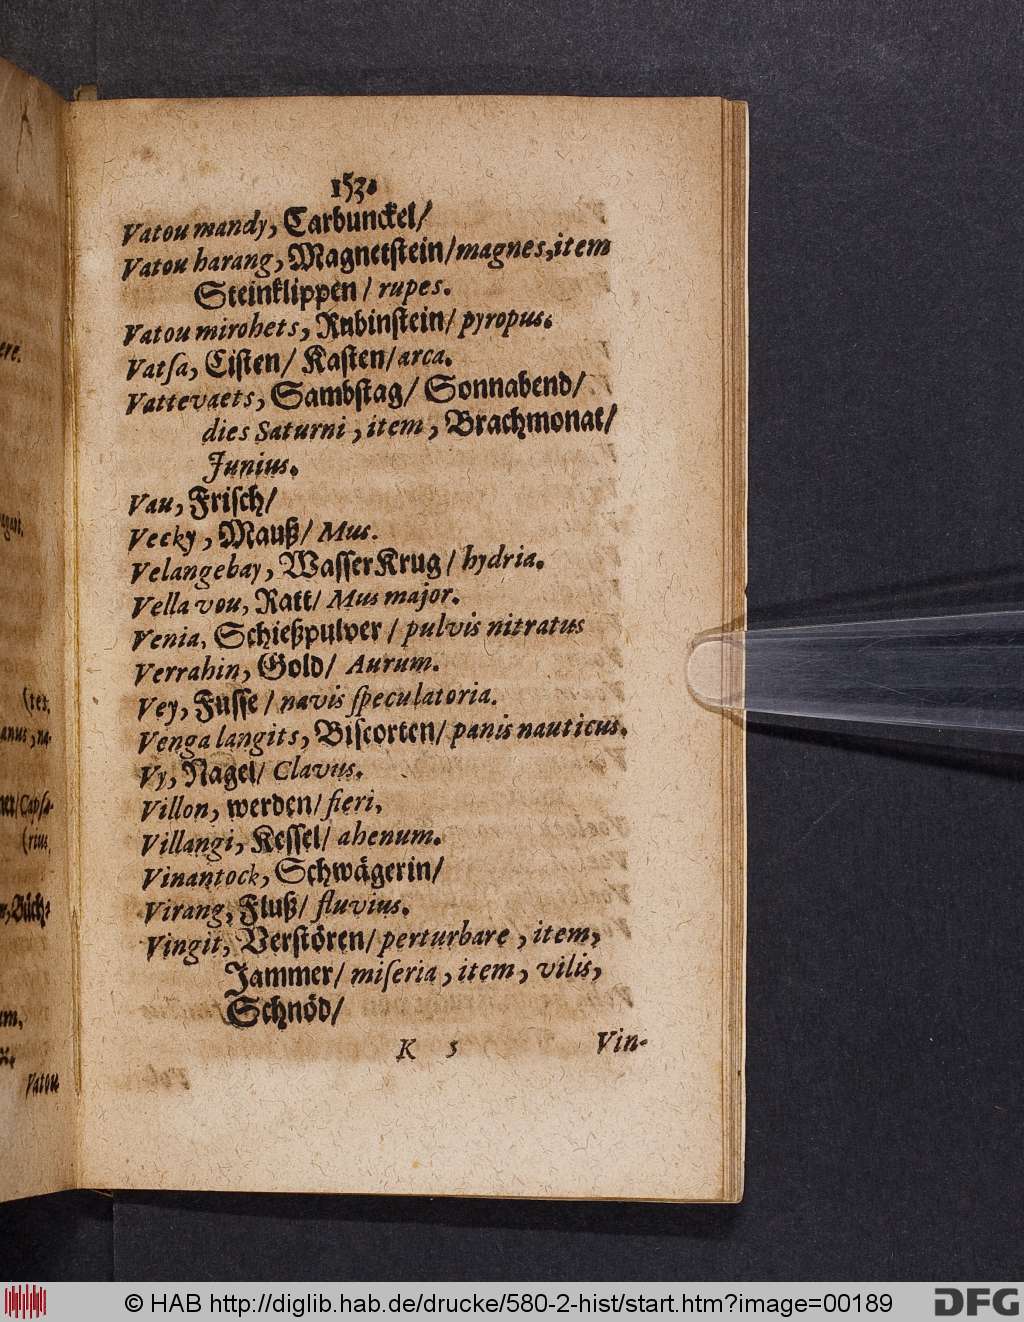 153.
Vatou mandy, Carbunckel/
Vatou harang, Magnetſtein/ magnes, item
Steinklippen / rupes.
Vatou mirohets, Rubinſtein/ pyropus.
Vatſa, Ciſten/ Kaſten/ arca.
Vattevaets, Sambſtag/ Sonnabend/
dies Saturni, item, Brachmonat/
Junius.
Vau, Friſch/
Vecky, Mauß/ Mus.
Velangebay, WaſſerKrug / hydria.
Vella vou, Ratt/ Mus major.
Venia, Schießpulver / pulvis nitratus
Verrahin, Gold/ Aurum.
Vey, Fuſſe / navis ſpeculatoria.
Venga langits, Biſcorten/ panis nauticus.
Vy, Nagel/ Clavus.
Villon, werden/ fieri.
Villangi, Keſſel/ ahenum.
Vinantock, Schwägerin/
Virang, Fluß/ fluvius.
Vingit, Verſtören/ perturbare, item,
Jammer/ miſeria, item, vilis,
Schnöd/
K 3 Vin-
ere.
(tes,
anus, na-
(rius
Büch-
um,
Vatou
© HAB http://diglib.hab.de/drucke/580-2-hist/start.htm?image=00189
DFG